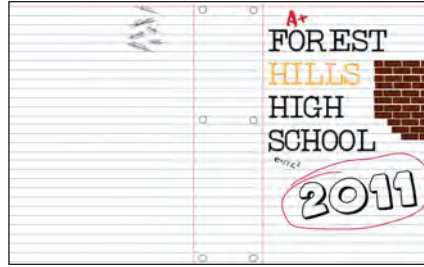 A+
FOREST
HILLS
HIGH
SCHOOL
e=mc²
2011